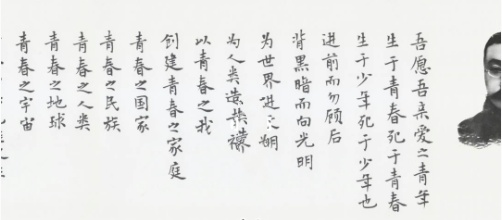 吾愿吾亲爱之青年
生于青春死于青春
生于少年死于少年也
进前而勿顾后
背黑暗而向光明
为世界进文明
为人类造
以青春之我
创建青春之家庭
青春之国家
青春之民族
青春之人类
青春之地球
青春之宇宙